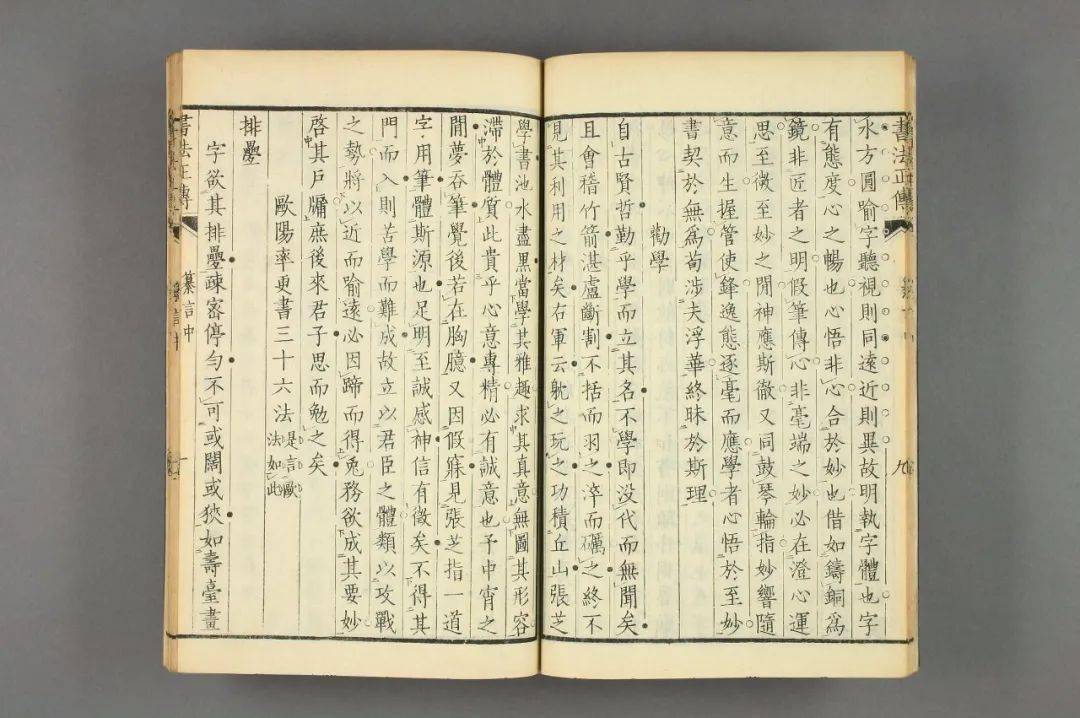 書法正傳
水方圓喻字聽視則同遠近則異故明執字體也字
有態度心之暢也心悟非心合於妙也借如鑄銅爲
鏡非匠者之明假筆傳心非毫端之妙必在澄心運
思至微至妙之間神應斯徹又同鼓琴輪指妙響隨
意而生握管使鋒逸態逐毫而應學者心悟於至妙
書契於無爲苟涉夫浮華終昧於斯理
勸學
自古賢哲勤乎學而立其名不學即没代而無聞矣
且會稽竹箭湛盧斷割不括而羽之淬而礪之終不
見其利用之材矣右軍云躭之玩之功積丘山張芝
學書池水盡黑當學其雅趣求其真意無圖其形容
滯於體質此貴乎心意專精必有誠意也予中宵之
間夢吞筆覺後若在胸臆又因假寐見張芝指一道
字用筆體斯源也足明至誠感神信有徵矣不得其
門而入則苦學而難成故立以君臣之體類以攻戰
之勢將以近而喻遠必因蹄而得兎務欲成其要妙
啓其戶牖庶後來君子思而勉之矣
歐陽率更書三十六法 是言歐法如此
排疊
字欲其排疊疎宻停勻不可或闊或狹如壽臺畫
書法正傳 纂言中